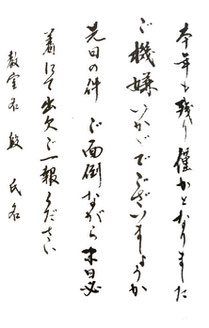 本年も残り僅かとなりました
ご機嫌いかがでございましょうか
先日の件 ご面倒ながら本日必
着にて出欠ご一報ください
教室名 殿 氏名